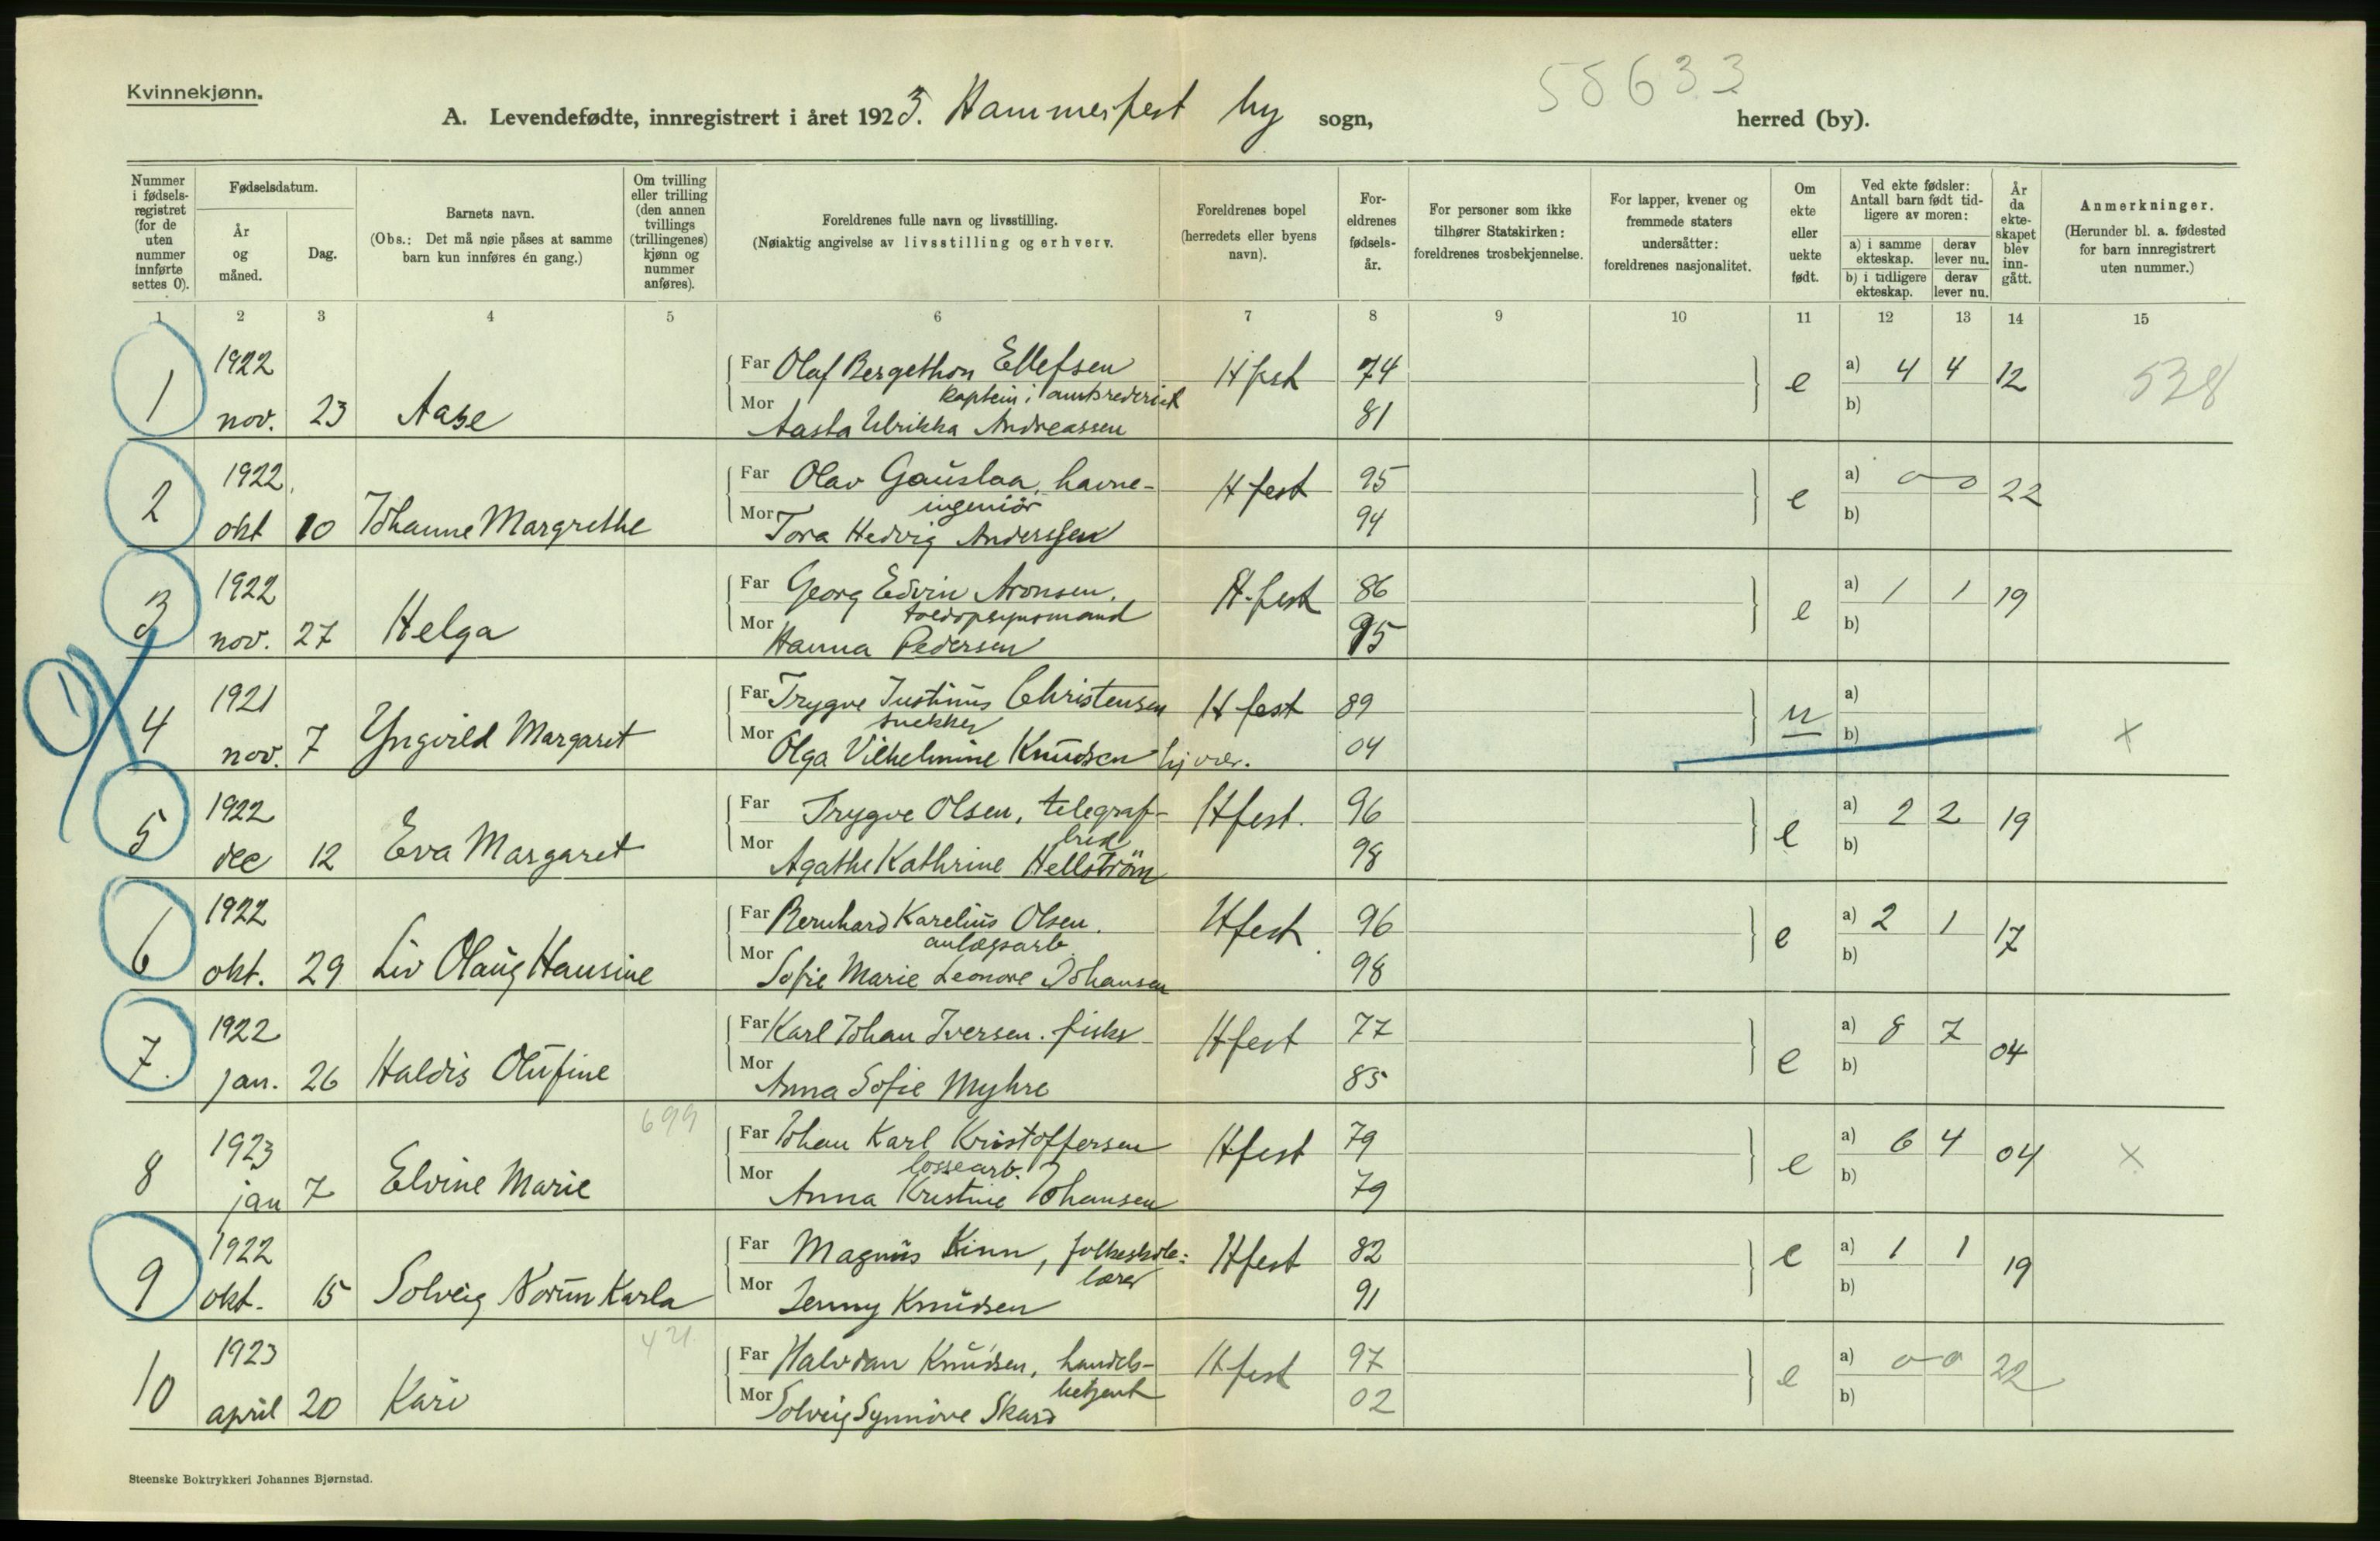 Kvinnekjønn.
55633
A. Levendefødte, innregistrert i året 1923. Hammerfest by sogn, herred (by).
Nummer i fødsels-registret (for de uten nummer innførte settes 0).
Fødselsdatum.
År og måned.
Dag.
Barnets navn.
(Obs.: Det må nøie påses at samme barn kun innføres én gang.)
Om tvilling eller trilling (den annen tvillings (trillingenes) kjønn og nummer anføres).
Foreldrenes fulle navn og livsstilling.
(Nøiaktig angivelse av livsstilling og erhverv.
Foreldrenes bopel (herredets eller byens navn).
For-eldrenes fødsels-år.
For personer som ikke tilhører Statskirken: foreldrenes trosbekjennelse.
For lapper, kvener og fremmede staters undersåtter: foreldrenes nasjonalitet.
Om ekte eller uekte født.
Ved ekte fødsler: Antall barn født tid-ligere av moren:
a) i samme ekteskap.
derav lever nu.
b) i tidligere ekteskap.
derav lever nu.
År da ekte-skapet blev inn-gått.
Anmerkninger.
(Herunder bl. a. fødested for barn innregistrert uten nummer.)
1 2 3 4 5 6 7 8 9 10 11 12 13 14 15
1 1922 nov. 23 Aase
Far Olaf Bergethon Ellefsen H fest 74 e a) 4 4 12 538
kaptein i amtsrederiet
Mor Aasta Ulrikka Andreassen 81 b)
2 1922. okt 10 Johanne Margrethe
Far Olav Gauslaa, havne- H fest 95 e a) 0 0 22
ingeniör
Mor Tora Hedvig Anderssen 94 b)
3 1922 nov. 27 Helga
Far Georg Edvin Aronsen. H.fest 86 e a) 1 1 19
toldopsynsmand
Mor Hanna Pedersen 95 b)
1
4 1921 nov. 7 Yngvild Margaret
Far Trygve Justinus Christensen H fest 89 u a) x
snekker
Mor Olga Vilhelmine Knudsen hj.vær. 04 b)
5 1922 dec 12 Eva Margaret
Far Trygve Olsen, telegraf- Hfest. 96 e a) 2 2 19
bud
Mor Agathe Kathrine Hellström 98 b)
6 1922 okt. 29 Liv Olaug Hansine
Far Bernhard Karelius Olsen. Hfest. 96 e a) 2 1 17
anlægsarb.
Mor Sofie Marie Leonore Johansen 98 b)
7. 1922 jan. 26 Haldis Olufine
Far Karl Johan Iversen. fisker Hfest 77 e a) 8 7 04
Mor Anna Sofie Myhre 85 b)
699
8 1923 jan 7 Elvine Marie
Far Johan Karl Kristoffersen Hfest 79 e a) 6 4 04 x
lossearb.
Mor Anna Kristine Johansen 79 b)
9 1922 okt. 15 Solveig Norun Karla
Far Magnus Kinn, folkeskole- Hfest 82 e a) 1 1 19
lærer
Mor Jenny Knudsen 91 b)
421
10 1923 april 20 Kari
Far Halvdan Knudsen, handels- H fest 97 e a) 0 0 22
betjent
Mor Solveig Synnöve Skard 02 b)
Steenske Boktrykkeri Johannes Bjørnstad.